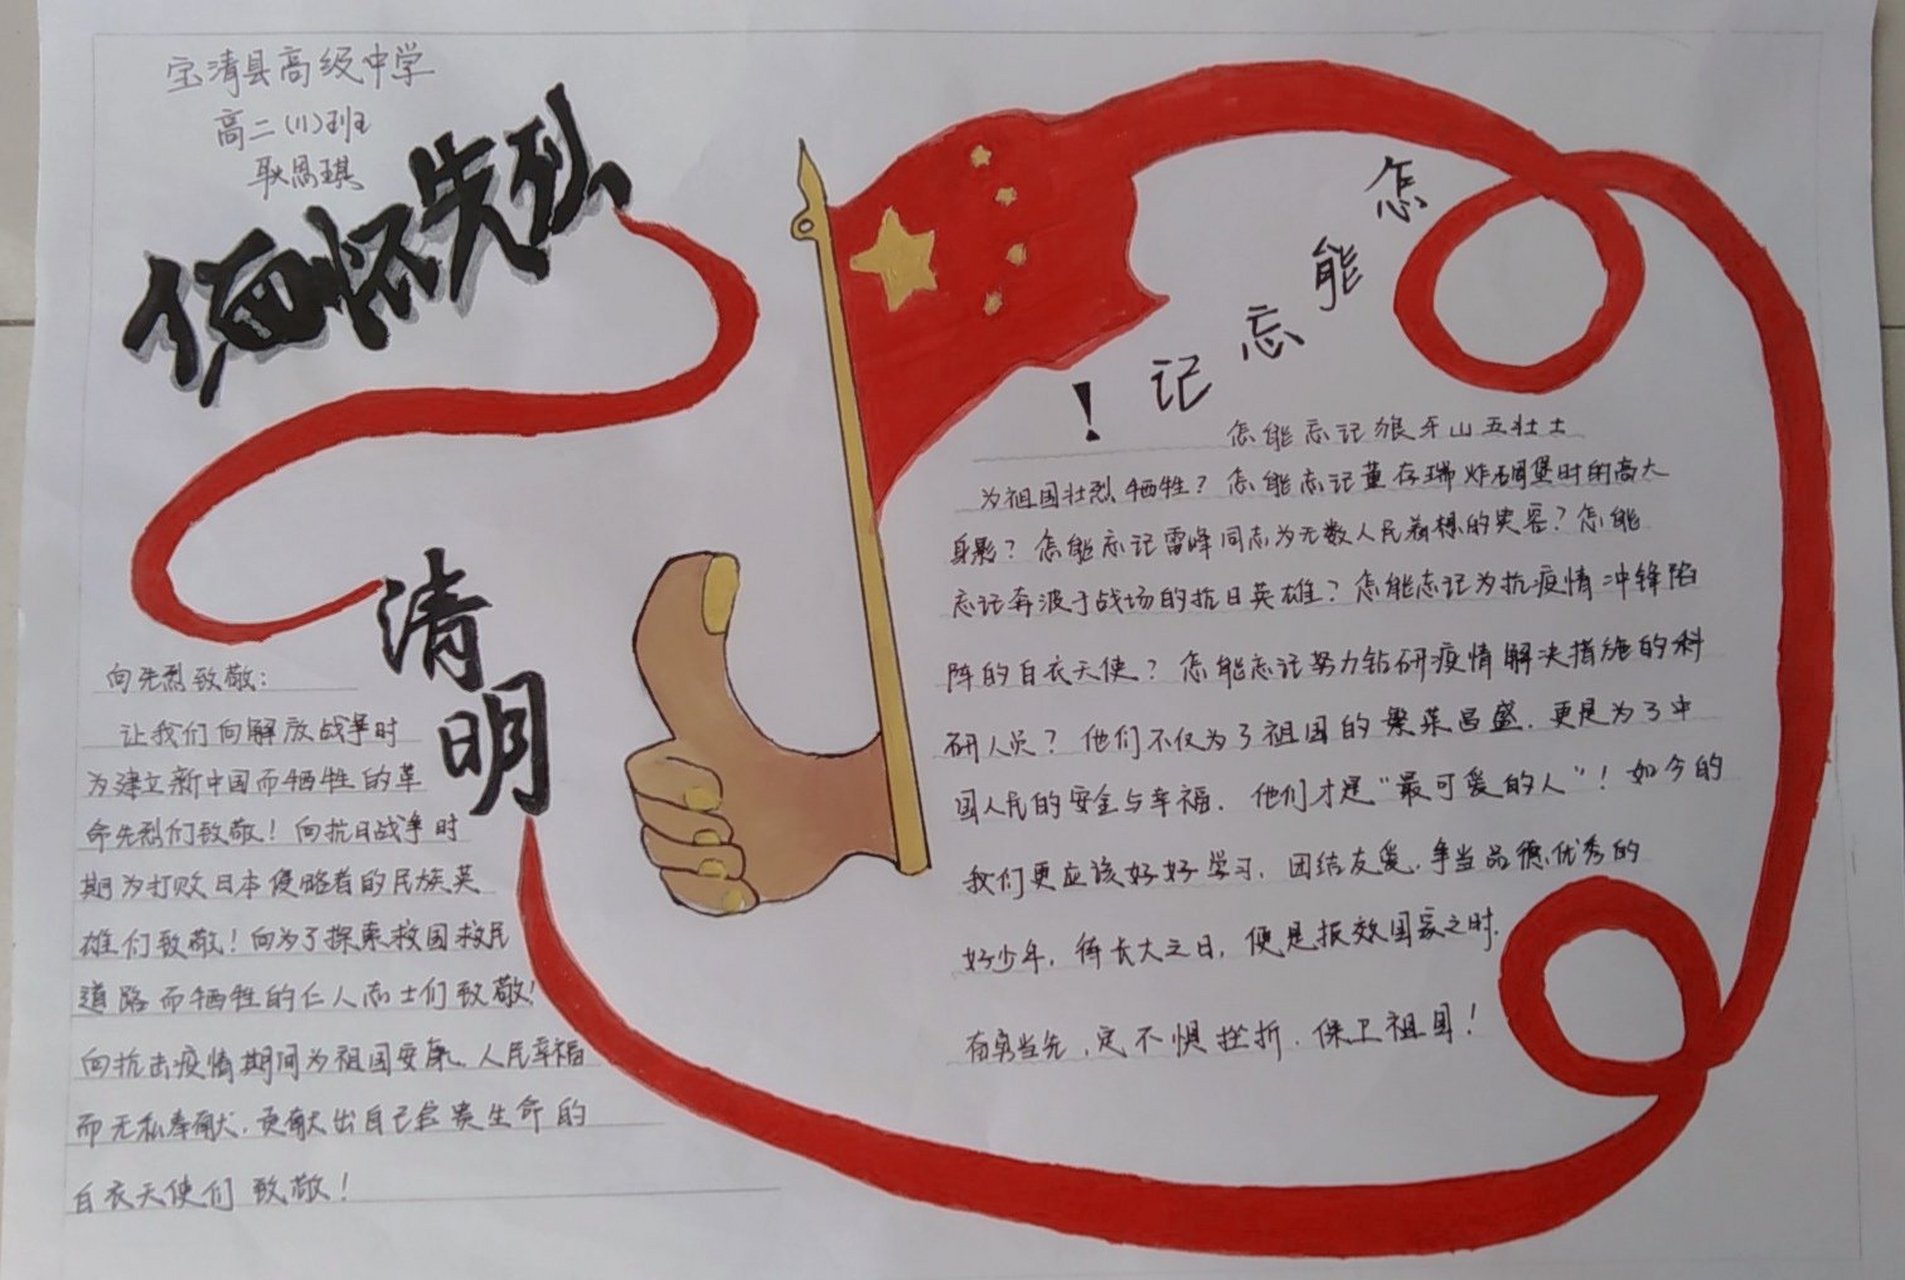 宝清县高级中学
高二(11)班
耿恩琪
缅怀先烈
清明
向先烈致敬：
让我们向解放战争时
为建立新中国而牺牲的革
命先烈们致敬！向抗日战争时
期为打败日本侵略者的民族英
雄们致敬！向为了探索救国救民
道路而牺牲的仁人志士们致敬！
向抗击疫情期间为祖国安康、人民幸福
而无私奉献，更献出自己宝贵生命的
白衣天使们致敬！
怎能忘记！
怎能忘记狼牙山五壮士
为祖国壮烈牺牲？怎能忘记董存瑞炸碉堡时的高大
身影？怎能忘记雷锋同志为无数人民着想的笑容？怎能
忘记奔波于战场的抗日英雄？怎能忘记为抗疫情冲锋陷
阵的白衣天使？怎能忘记努力钻研疫情解决措施的科
研人员？他们不仅为了祖国的繁荣昌盛，更是为了中
国人民的安全与幸福，他们才是“最可爱的人”！如今的
我们更应该好好学习，团结友爱，争当品德优秀的
好少年，待长大之日，便是报效国家之时，
奋勇当先，定不惧挫折，保卫祖国！